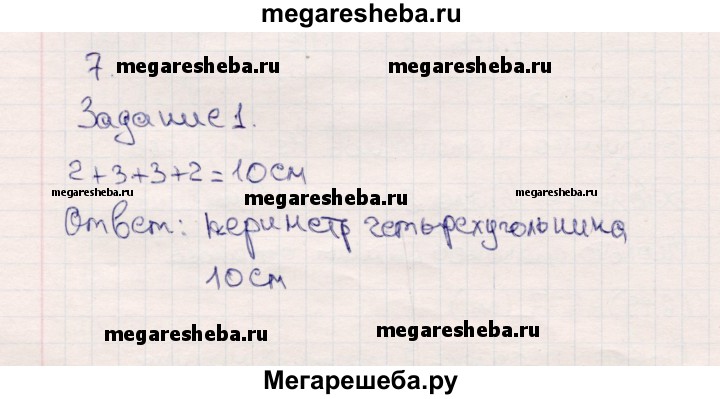 megaresheba.ru
7. megaresheba.ru megaresheba.ru
Задание 1.
2+3+3+2=10см
megaresheba.ru megaresheba.ru megaresheba.ru
Ответ: периметр четырехугольника
10см
megaresheba.ru megaresheba.ru
Мегарешеба.ру